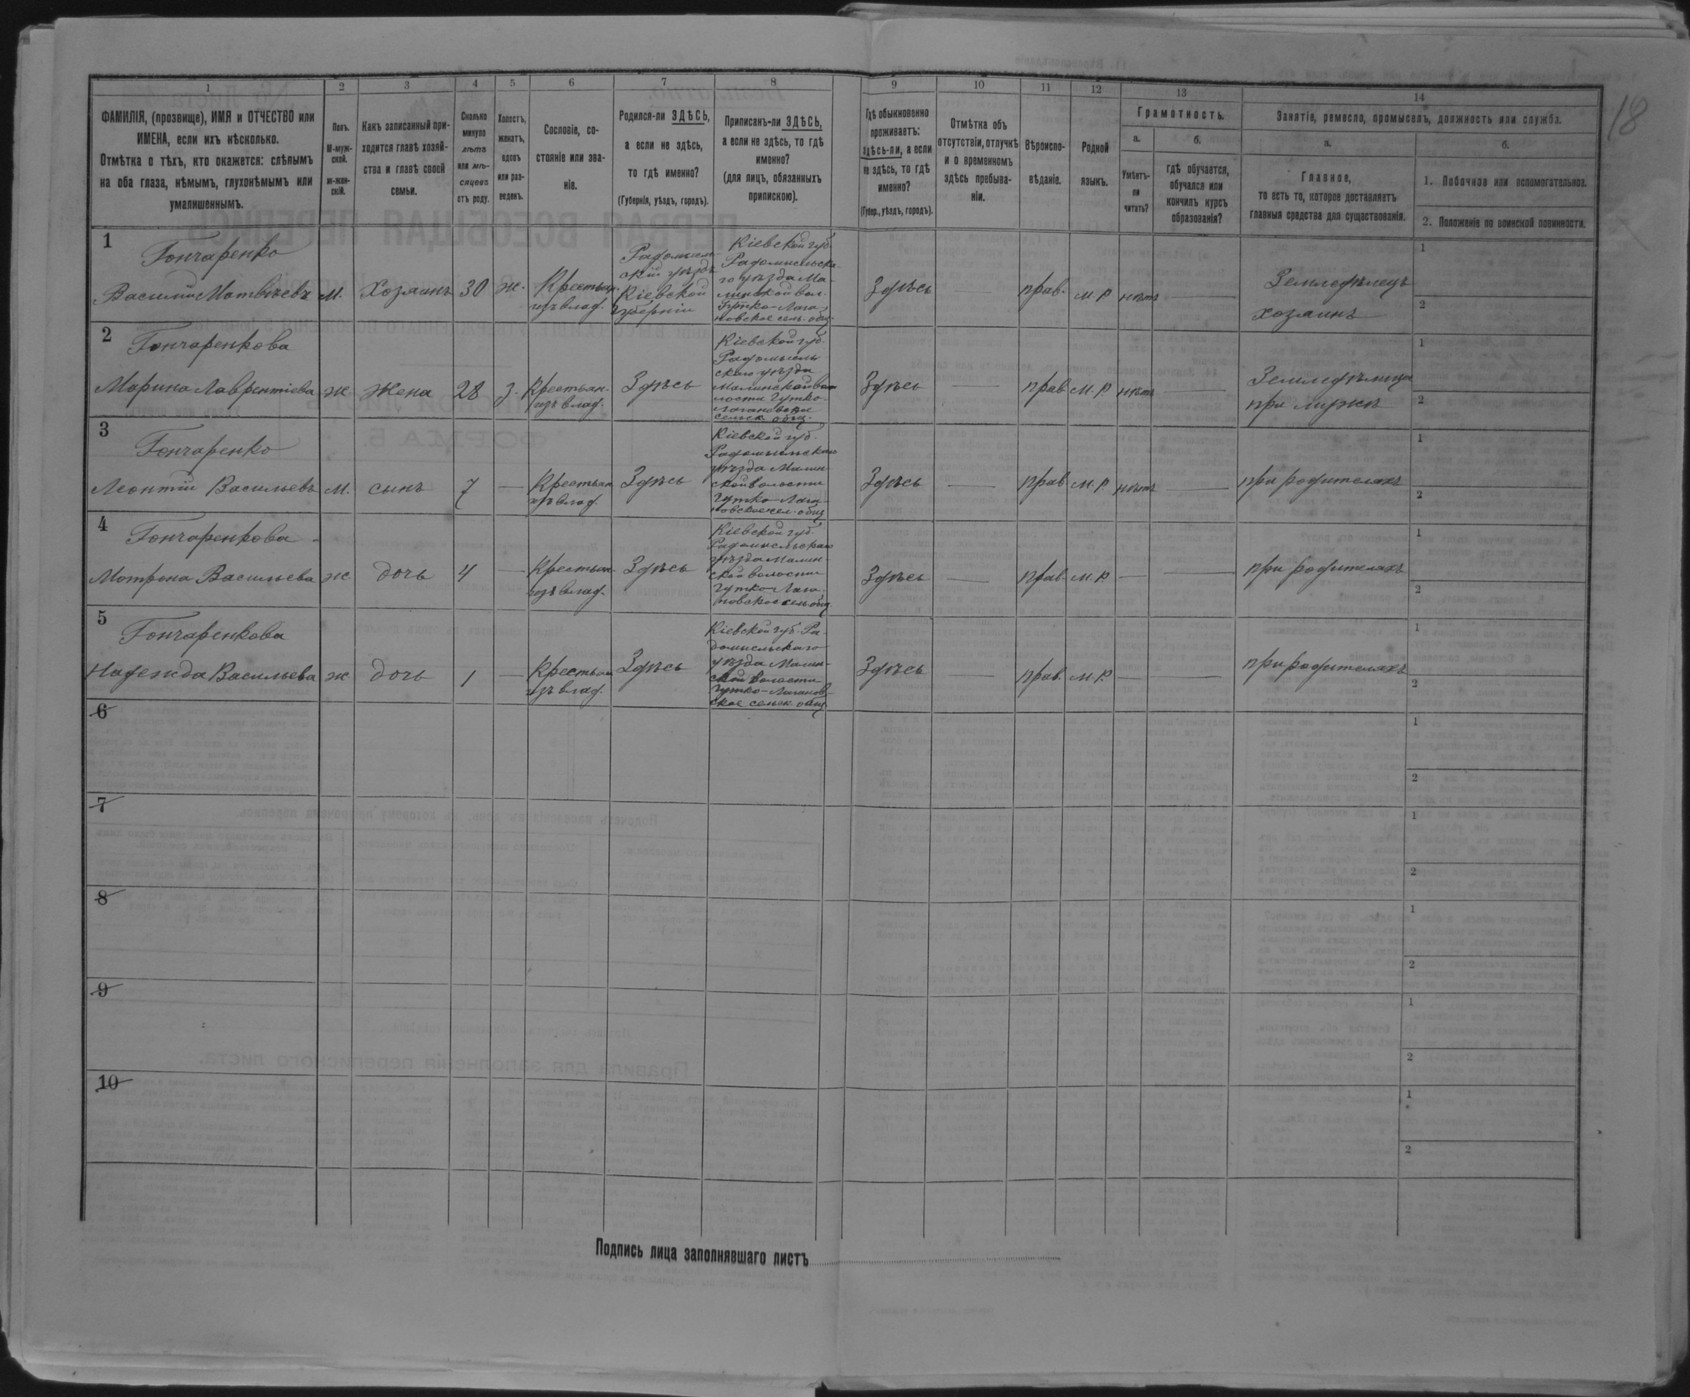 18
1 2 3 4 5 6 7 8 9 10 11 12 13 14
ФАМИЛІЯ, (прозвище), ИМЯ и ОТЧЕСТВО или
ИМЕНА, если ихъ нѣсколько.
Отмѣтка о тѣхъ, кто окажется: слѣпымъ
на оба глаза, нѣмымъ, глухонѣмымъ или
умалишеннымъ.
Полъ.
М-муж-
ской.
ж-жен-
скій.
Какъ записанный при-
ходится главѣ хозяй-
ства и главѣ своей
семьи.
Сколько
минуло
лѣтъ
или мѣ-
сяцевъ
отъ роду.
Холостъ,
женатъ,
вдовъ
или раз-
веденъ.
Сословіе, со-
стояніе или зва-
ніе.
Родился-ли ЗДѢСЬ,
а если не здѣсь,
то гдѣ именно?
(Губернія, уѣздъ, городъ).
Приписанъ-ли ЗДѢСЬ,
а если не здѣсь, то гдѣ
именно?
(для лицъ, обязанныхъ
припискою).
Гдѣ обыкновенно
проживаетъ:
здѣсь-ли, а если
не здѣсь, то гдѣ
именно?
(Губер., уѣздъ, городъ).
Отмѣтка объ
отсутствіи, отлучкѣ
и о временномъ
здѣсь пребыва-
ніи.
Вѣроиспо-
вѣданіе.
Родной
языкъ.
Грамотность.
а.
Умѣетъ-
ли
читать?
б.
гдѣ обучается,
обучался или
кончилъ курсъ
образованія?
Занятіе, ремесло, промыселъ, должность или служба.
а.
Главное,
то есть то, которое доставляетъ
главныя средства для существованія.
б.
1. Побочное или вспомогательное.
2. Положеніе по воинской повинности.
1
Гончаренко
Василій Матвѣевъ
м.
Хозяинъ
30
ж.
Крестьян
изъ влад.
Радомысль-
скій уѣздъ
Кіевской
губерніи
Кіевской губ.
Радомысльска-
го уѣзда Ма-
линской вол.
Гутко-Лога-
новское сел. общ
Здѣсь
прав.
м.р
нѣтъ
Земледѣлецъ
хозяинъ
1
2
2
Гончаренкова
Марина Лаврентіева
ж.
Жена
28
з.
Крестьян.
изъ влад.
Здѣсь
Кіевской губ.
Радомысль
скаго уѣзда
Малинской во
лости Гутко-
Логановское
сельск. общ.
Здѣсь
прав
м.р
нѣтъ
Земледѣлица
при мужѣ
1
2
3
Гончаренко
Леонтій Васильевъ
м.
сынъ
7
Крестьян
изъ влад.
Здѣсь
Кіевской губ.
Радомысльскаго
уѣзда Малин-
ской волости
Гутко-Лога-
Здѣсь
прав
м.р
нѣтъ
при родителяхъ
1
2
4
Гончаренкова
Мотрона Васильева
ж.
дочь
4
Крестьян
изъ влад.
Здѣсь
Кіевской губ.
Радомысльскаго
уѣзда Малин-
ской волости
Гутко Лога-
новское сел общ
Здѣсь
прав.
м.р
при родителяхъ
1
2
5
Гончаренкова
Надежда Васильева
ж
дочь
1
Крестьян
изъ влад.
Здѣсь
Кіевской губ. Ра-
домысльскаго
уѣзда Малин-
ской волости
Гутко-Логанов-
ское сельск. общ
Здѣсь
прав.
м.р.
при родителяхъ
1
2
6
1
2
7
1
2
8
1
2
9
1
2
10
1
2
Подпись лица заполнявшаго листъ